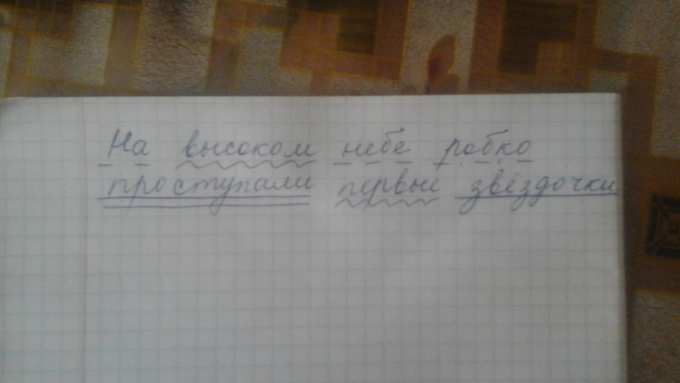 На высоком небе робко
проступали первые звёздочки